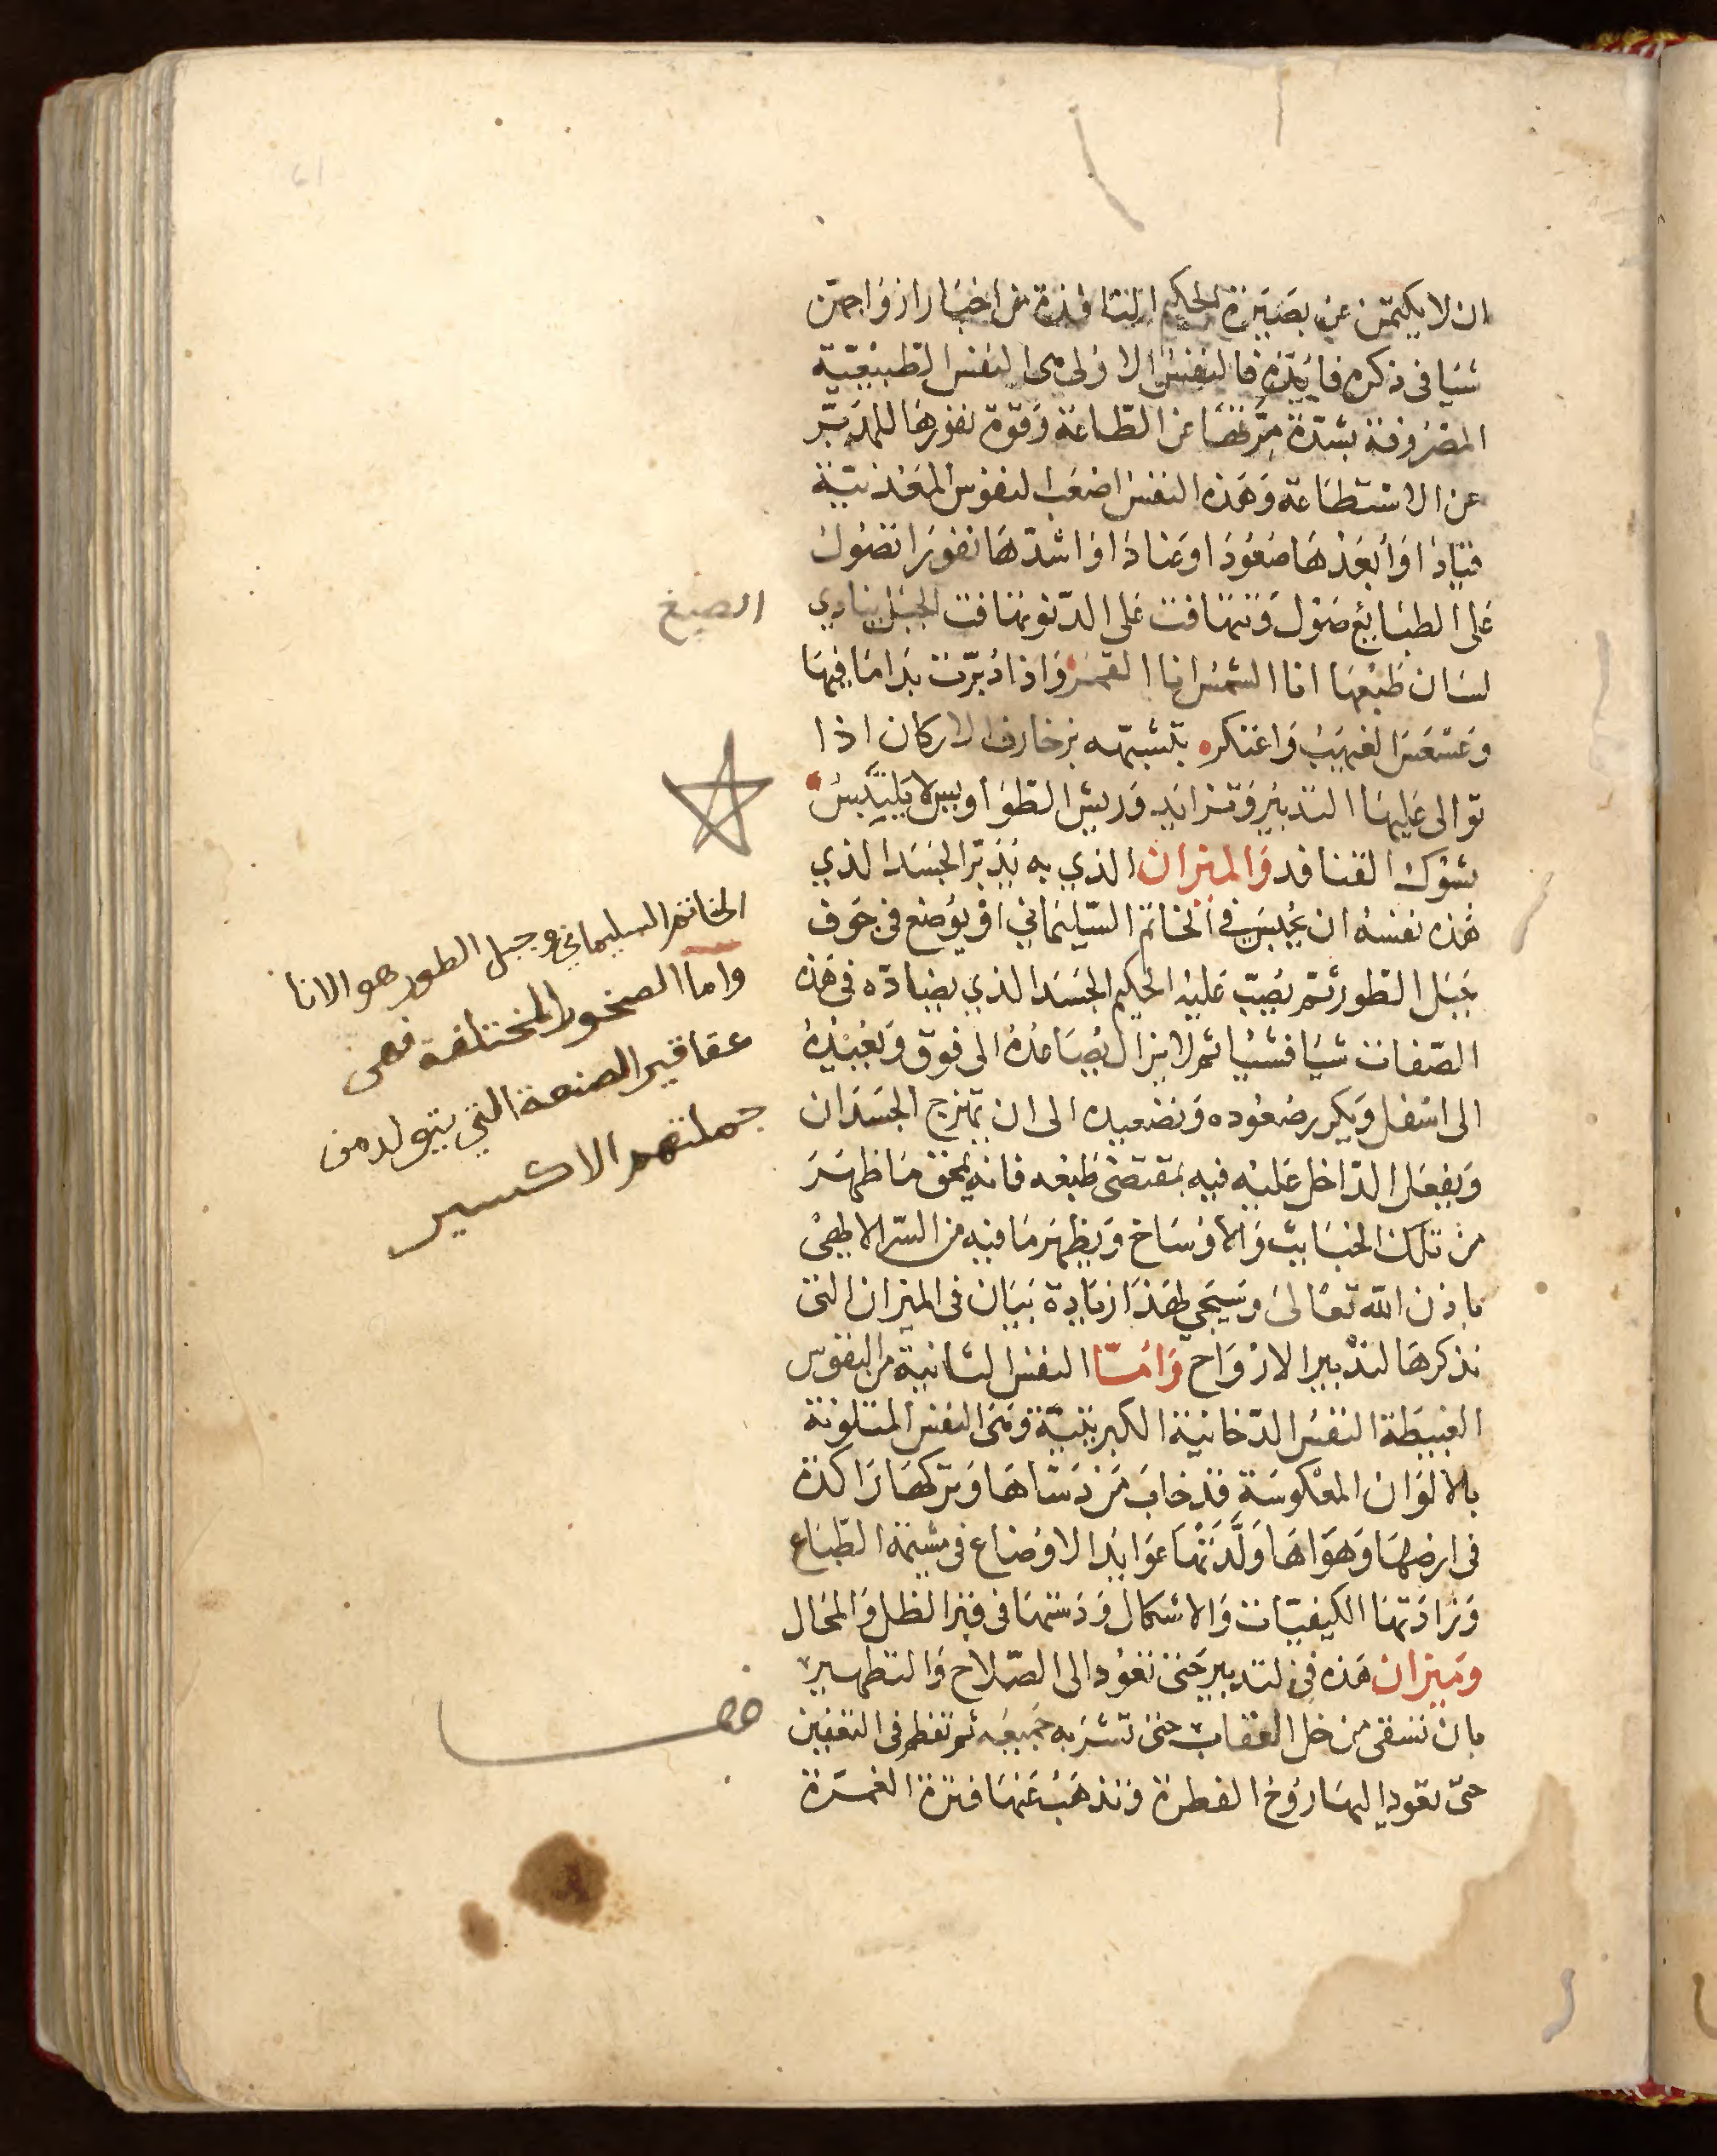 ان لا يكتمن عن بصيرة الحكيم النافذة من اخبار ازواجهن
شيا فى ذكره فايدة فالنفس الاولى هى النفس الطبيعية
المصروفة بشدة مرضها عن الطاعة وقوة نفورها للمدبر
عن الاستطاعة وهذه النفس اصعب النفوس المعدنية
قيادا وابعدها صعودا وعنادا واشدها نفورا تصول
على الطبايع صول وتتهافت على الدنو تهافت الجبل ينادي
لسان طبعها انا الشمس انا القمر واذا دبرت بدا ما فيها
وعسعس الغيهب واعتكر بتشبهه بزخارف الاركان اذا
توالى عليها التدبير وتزايد وريش الطواويس لا يلتبس
بشوك القنافد والميزان الذي به يدبر الجسد الذي
هذه نفسه ان يحبس فى الخاتم السليماني او يوضع فى جوف
جبل الطور ثم يصب عليه الحكيم الجسد الذي يضاده فى هذه
الصفات شيا فشيا ثم لا يزال يصاعده الى فوق وتعيده
الى اسفل ويكرر صعوده وتصعيده الى ان يمتزج الجسدان
ويفعل الداخل عليه فيه بمقتضى طبعه فانه يمحق ما ظهر
من تلك الخبايث والاوساخ ويظهر ما فيه من السر الالهى
باذن الله تعالى وسيجي لهذا زيادة بيان فى الميزان التى
نذكرها لتدبير الارواح واما النفس الثانية من النفوس
الغبيطة النفس الدخانية الكبريتية وهى النفس المتلونة
بالالوان المعكوسة قد خاب من دساها وتركها راكدة
فى ارضها وهواها ولدتها عوايد الاوضاع فى مشيمة الطباع
وزادتها الكيفيات والاشكال ودستها فى قبر الظل والمحال
وميزان هذه فى التدبير حتى تعود الى الصلاح والتطهير
بان تسقى من خل العقاب حتى تشربه جميعه ثم تفطر فى التعفين
حتى تعود اليها روح الفطرة وتذهب عنها فترة الغمرة
الصبغ
الخاتم السليماني وجبل الطور هو الانا
واما الصخور المختلفة فهى
عقاقير الصنعة التي يتولد من
جملتهم الاكسير